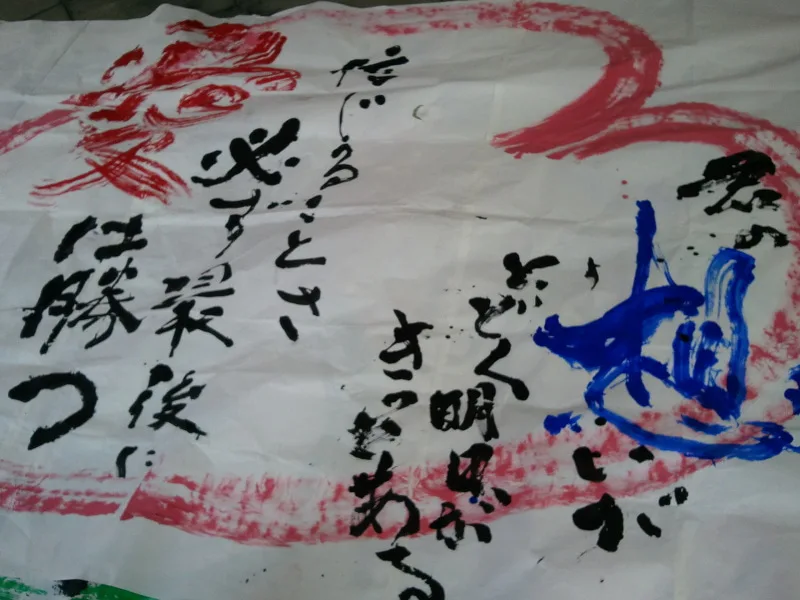 君の想いが
とどく明日が
きっとある
信じることさ
必ず最後に
愛は勝つ